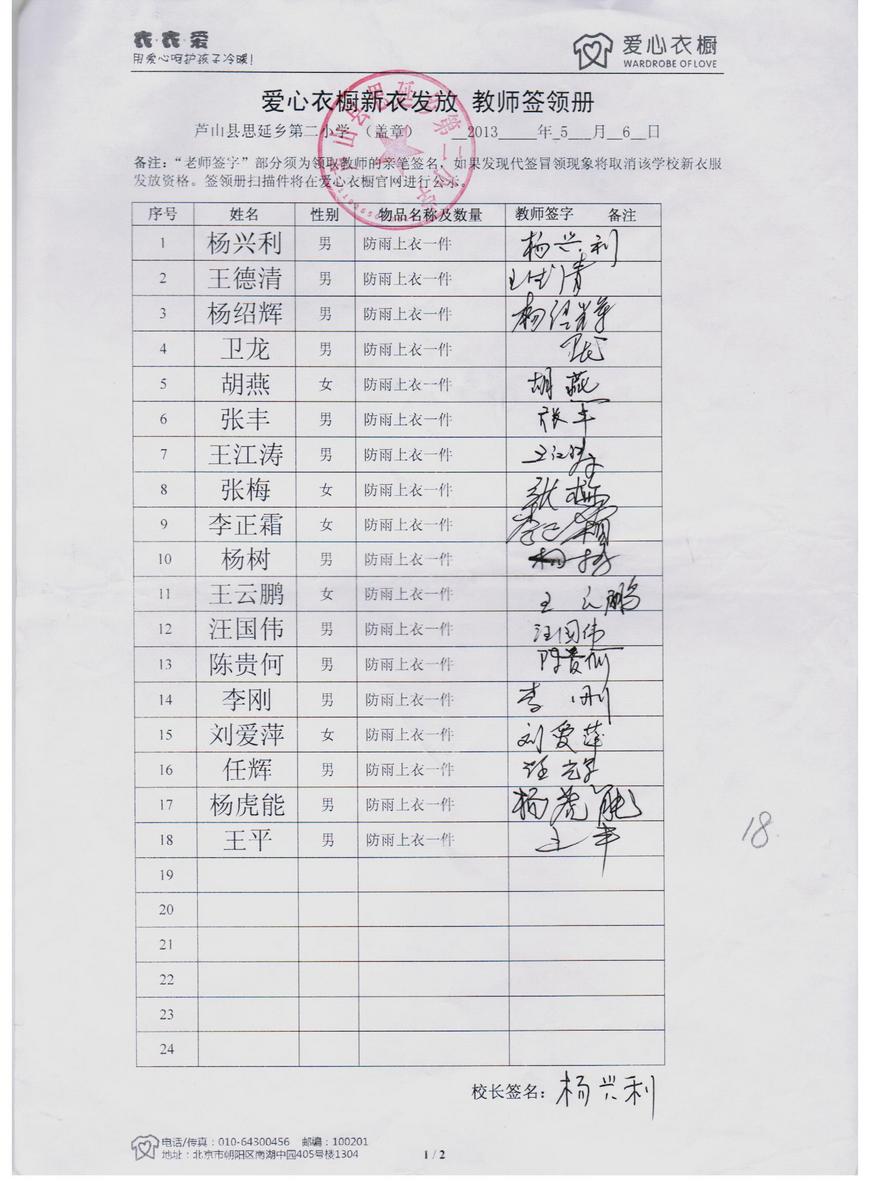 衣·衣·爱
用爱心呵护孩子冷暖！
爱心衣橱
WARDROBE OF LOVE
爱心衣橱新衣发放 教师签领册
芦山县思延乡第二小学 （盖章） 2013 年 5 月 6 日
备注：“老师签字”部分须为领取教师的亲笔签名，如果发现代签冒领现象将取消该学校新衣服
发放资格。签领册扫描件将在爱心衣橱官网进行公示。
序号 姓名 性别 物品名称及数量 教师签字 备注
1 杨兴利 男 防雨上衣一件 杨兴利
2 王德清 男 防雨上衣一件 王德清
3 杨绍辉 男 防雨上衣一件 杨绍辉
4 卫龙 男 防雨上衣一件 卫龙
5 胡燕 女 防雨上衣一件 胡燕
6 张丰 男 防雨上衣一件 张丰
7 王江涛 男 防雨上衣一件 王江涛
8 张梅 女 防雨上衣一件 张梅
9 李正霜 女 防雨上衣一件 李正霜
10 杨树 男 防雨上衣一件 杨树
11 王云鹏 女 防雨上衣一件 王云鹏
12 汪国伟 男 防雨上衣一件 汪国伟
13 陈贵何 男 防雨上衣一件 陈贵何
14 李刚 男 防雨上衣一件 李刚
15 刘爱萍 女 防雨上衣一件 刘爱萍
16 任辉 男 防雨上衣一件 任辉
17 杨虎能 男 防雨上衣一件 杨虎能
18 王平 男 防雨上衣一件 王平
18
19
20
21
22
23
24
校长签名：杨兴利
电话/传真：010-64300456 邮编：100201
地址：北京市朝阳区南湖中园405号楼1304
1 / 2